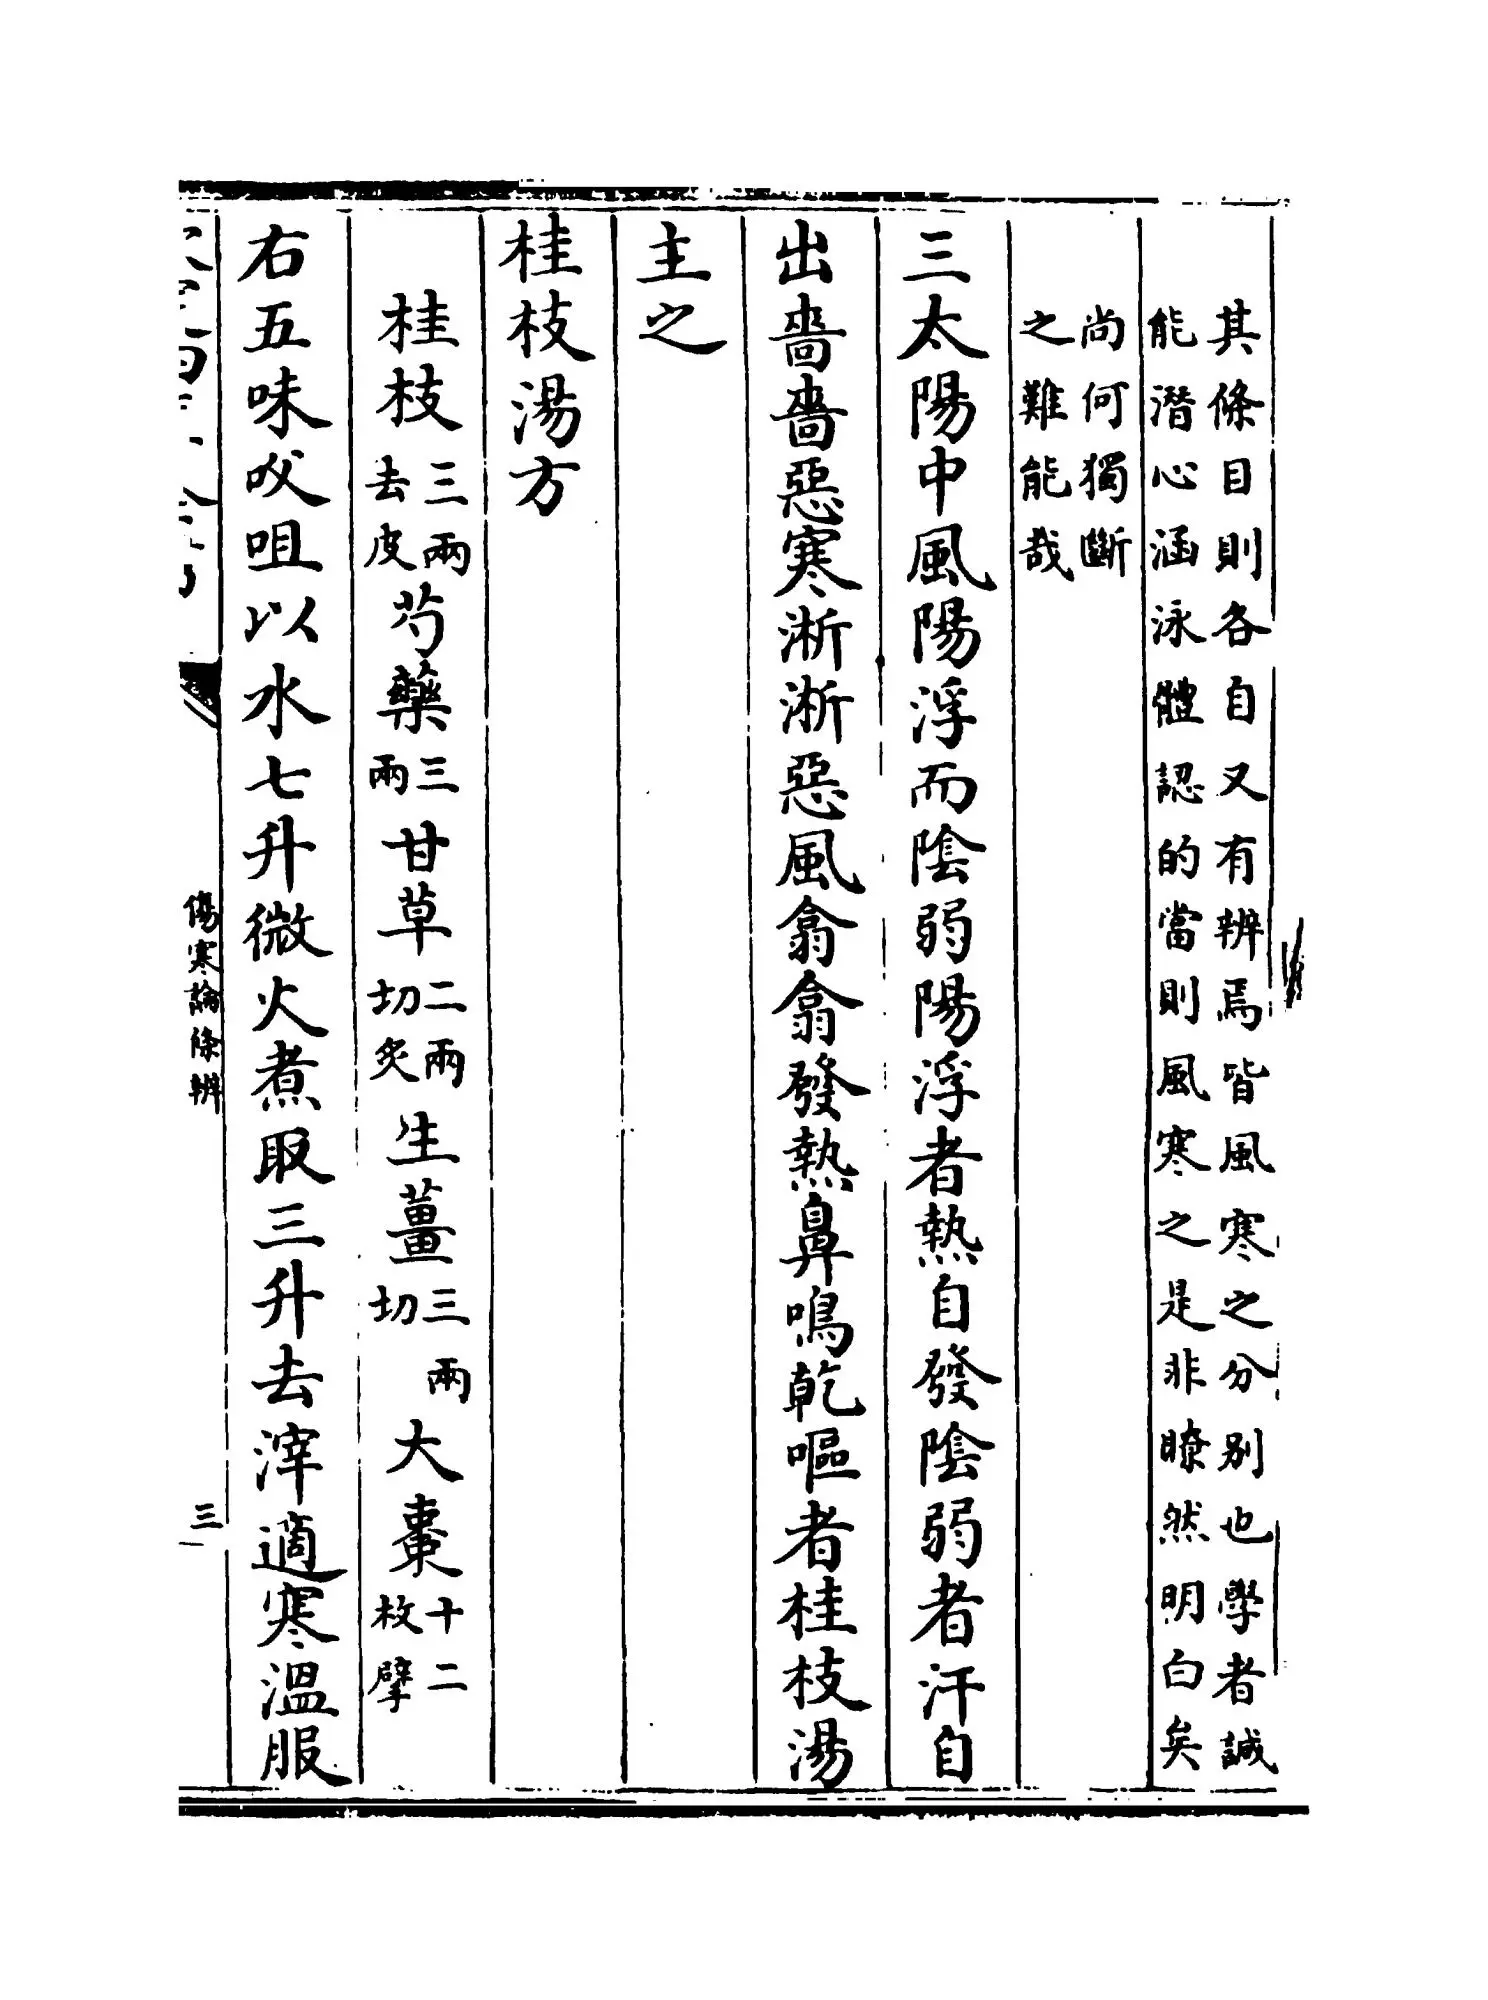 其條目則各自又有辨焉皆風寒之分别也學者誠
能潛心涵泳體認的當則風寒之是非瞭然明白矣
尚何獨斷
之難能哉
三太陽中風陽浮而陰弱陽浮者熱自發陰弱者汗自
出嗇嗇惡寒淅淅惡風翕翕發熱鼻鳴乾嘔者桂枝湯
主之
桂枝湯方
桂枝三兩去皮芍藥三兩甘草二兩切炙生薑三兩切大棗十二枚擘
右五味㕮咀以水七升微火煮取三升去滓適寒溫服
傷寒論條辨
三